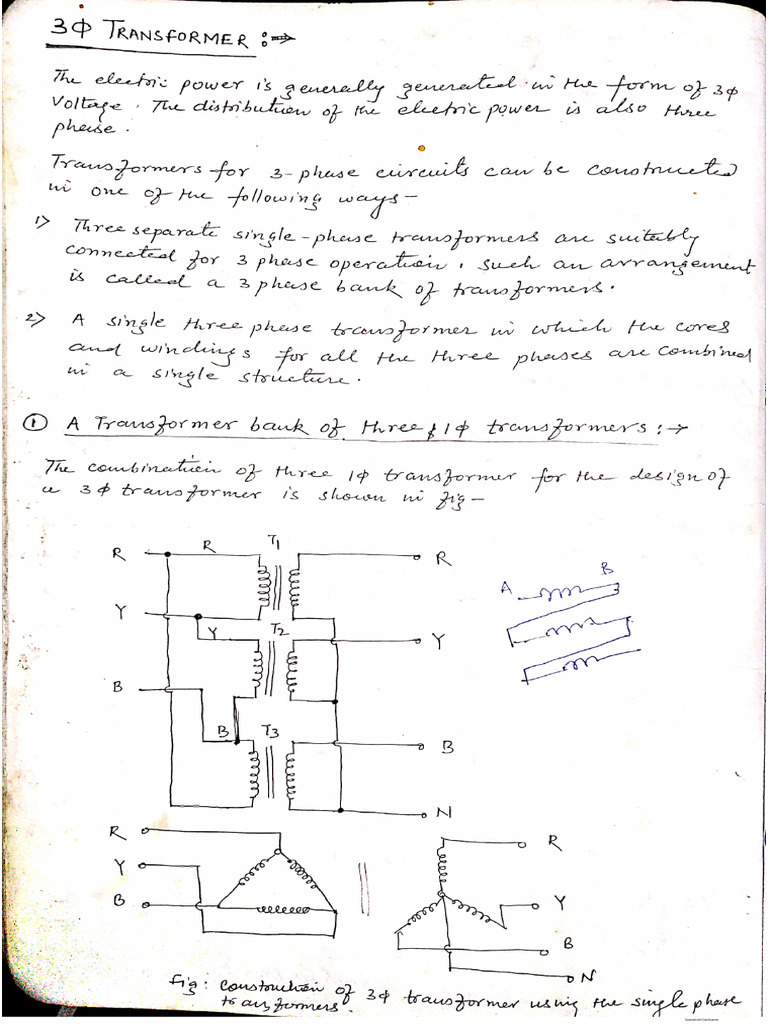 3ϕ TRANSFORMER :⇒
The electric power is generally generated in the form of 3ϕ
Voltage. The distribution of the electric power is also three
phase.
Transformers for 3-phase circuits can be constructed
in one of the following ways-
1> Three separate single-phase transformers are suitably
connected for 3 phase operation, such an arrangement
is called a 3 phase bank of transformers.
2> A single three phase transformer in which the cores
and windings for all the three phases are combined
in a single structure.
① A Transformer bank of three 1ϕ transformers :→
The combination of three 1ϕ transformer for the design of
a 3ϕ transformer is shown in fig-
R R T1 R
Y Y T2 Y
B B T3 B
N
A B
R
Y
B
R
Y
B
N
Fig: construction of 3ϕ transformer using the single phase
transformers.